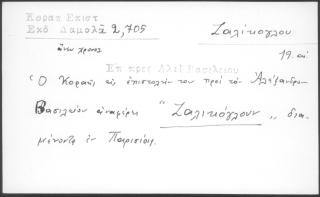 Κοραη Επιστ
Εκδ Δαμαλᾶ 2,705
Ζαλίκογλου
ἄνευ χρονολ
19. αἰ
Επ προς Αλεξ Βασιλειου
Ὁ Κοραῆς εἰς ἐπιστολήν του πρὸς τὸν Ἀλέξανδρον
Βασιλείου ἀναφέρει "Ζαλικόγλουν„ δια-
μένοντα ἐν Παρισίοις.